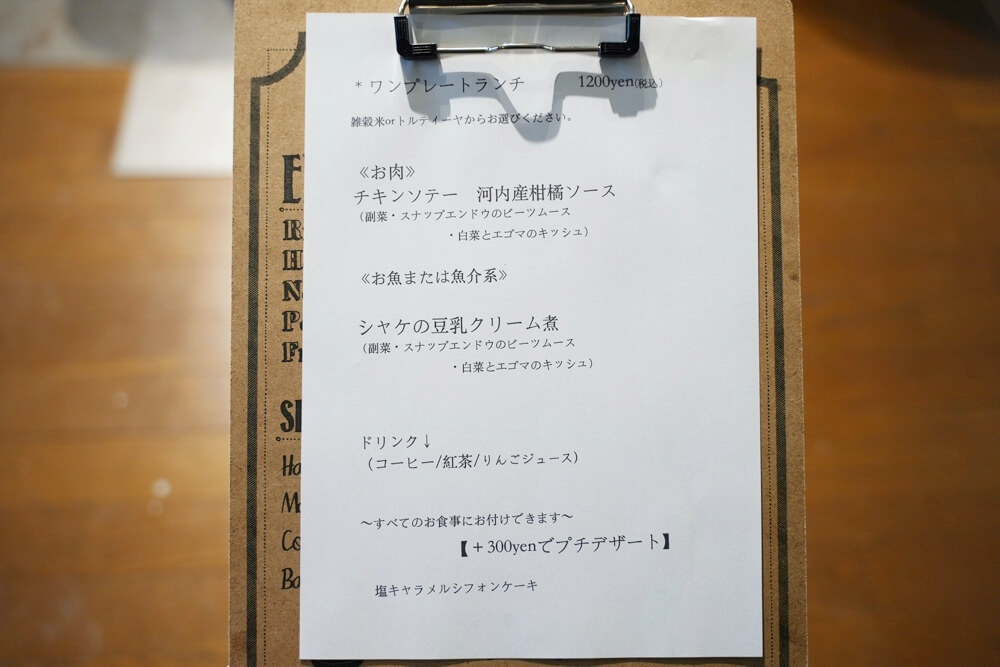 * ワンプレートランチ 1200yen(税込)
雑穀米orトルティーヤからお選びください。
《お肉》
チキンソテー 河内産柑橘ソース
(副菜・スナップエンドウのビーツムース
・白菜とエゴマのキッシュ)
《お魚または魚介系》
シャケの豆乳クリーム煮
(副菜・スナップエンドウのビーツムース
・白菜とエゴマのキッシュ)
ドリンク↓
(コーヒー/紅茶/りんごジュース)
～すべてのお食事にお付けできます～
【＋300yenでプチデザート】
塩キャラメルシフォンケーキ